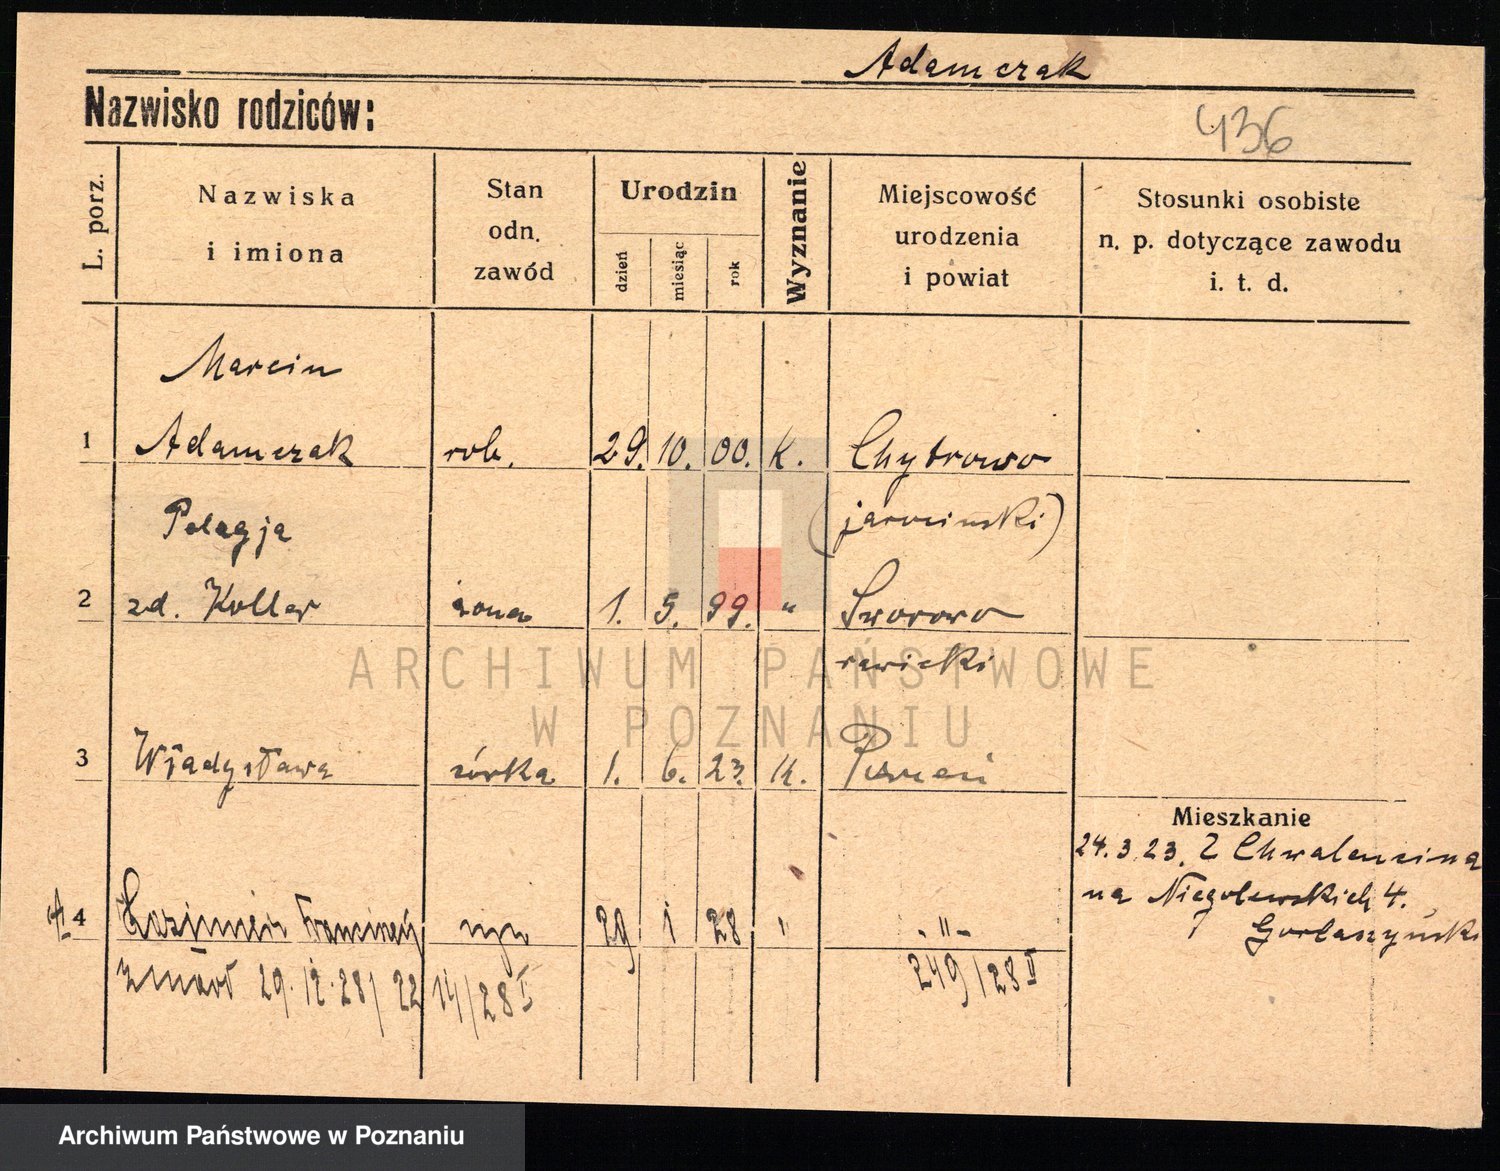 Adamczak
Nazwisko rodziców:
436
L. porz.
Nazwiska
i imiona
Stan
odn.
zawód
Urodzin
dzień
miesiąc
rok
Wyznanie
Miejscowość
urodzenia
i powiat
Stosunki osobiste
n. p. dotyczące zawodu
i. t. d.
Marcin
1 Adamczak rob. 29. 10. 00. K. Chytrowo
Pelagja (jarociński)
2 zd. Koller żona 1. 5. 99. " Sworowo
rawicki
ARCHIWUM PAŃSTWOWE
W POZNANIU
3 Władysława córka 1. 6. 23. K. Poznań
Mieszkanie
24.3.23. Z Chwalencina
na Niegolewskich 4.
Gorłaszyński
4 Kazimierz Franciszek syn 29 1 28 " -"-
zmarł 29.12.28/2214/28 I 249/28 II
Archiwum Państwowe w Poznaniu